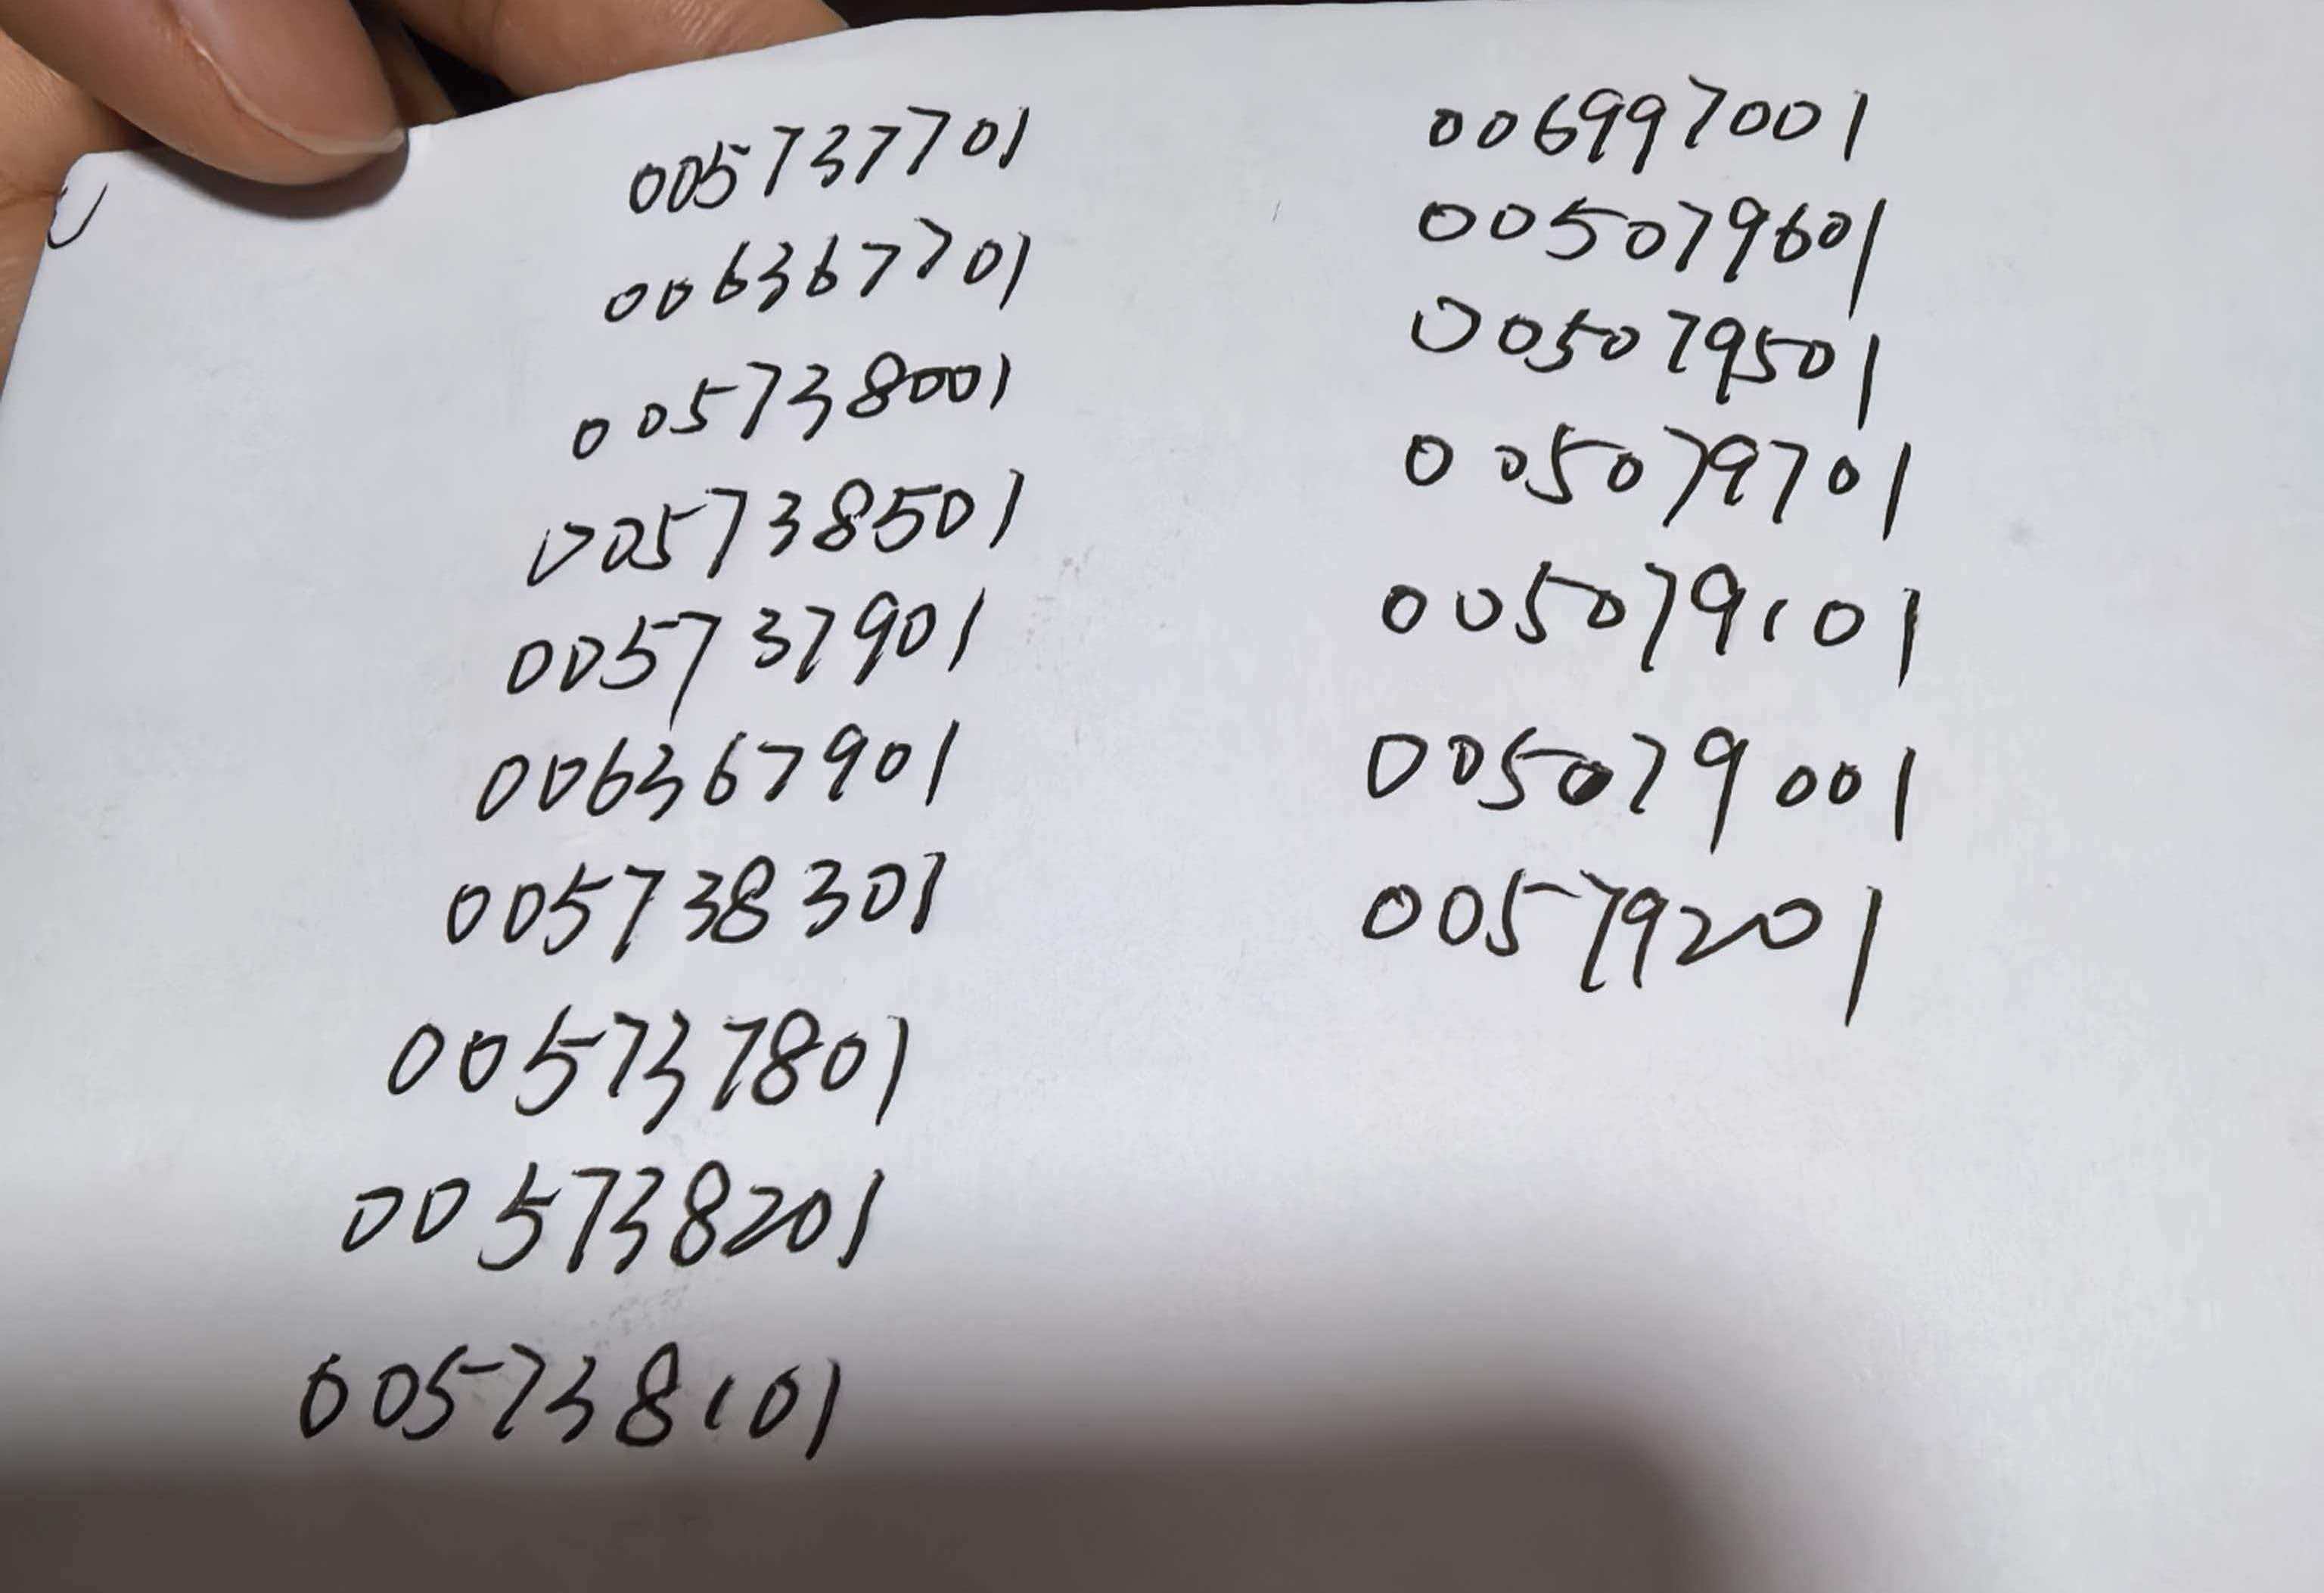 005737701
006367701
005738001
005738501
005737901
006367901
005738301
005737801
005738201
005738101
006997001
005079601
005079501
005079701
005079101
005079001
00579201